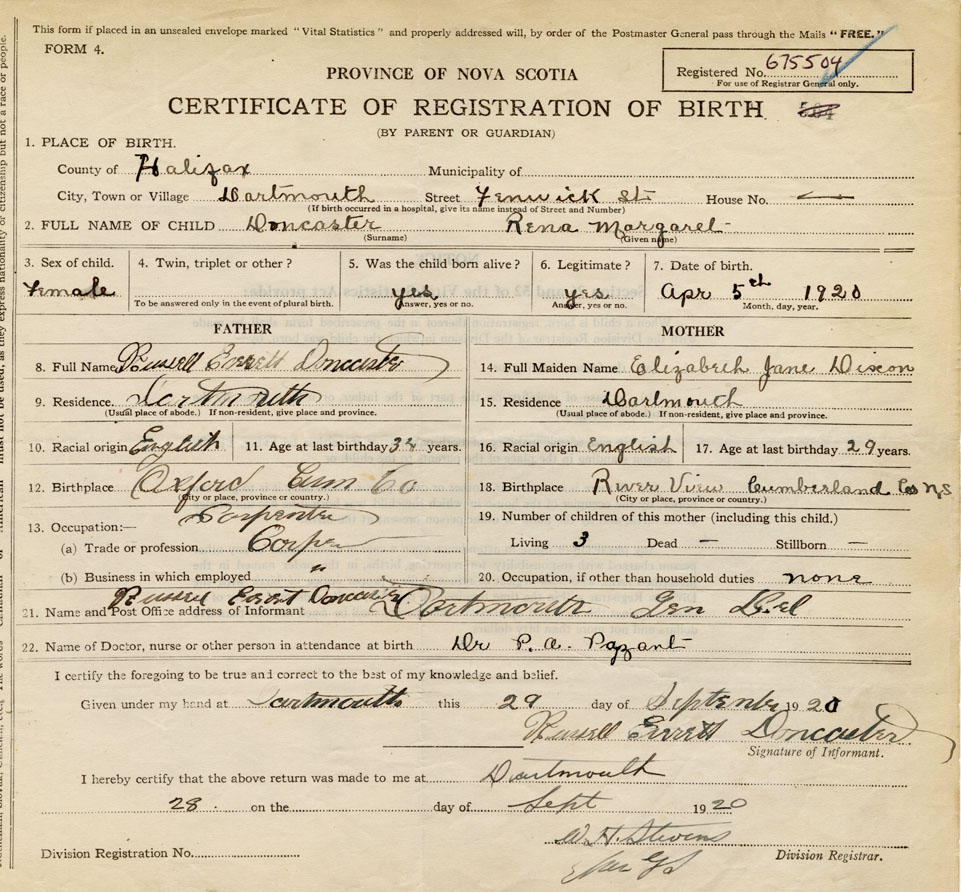 This form if placed in an unsealed envelope marked "Vital Statistics" and properly addressed will, by order of the Postmaster General pass through the Mails "FREE."
FORM 4.
Registered No. 675504
For use of Registrar General only.
PROVINCE OF NOVA SCOTIA
CERTIFICATE OF REGISTRATION OF BIRTH.
(BY PARENT OR GUARDIAN)
1. PLACE OF BIRTH.
County of Halifax Municipality of
City, Town or Village Dartmouth Street Fenwick St. House No. —
(If birth occurred in a hospital, give its name instead of Street and Number)
2. FULL NAME OF CHILD Doncaster Rena Margaret
(Surname) (Given name)
3. Sex of child. 4. Twin, triplet or other? 5. Was the child born alive? 6. Legitimate? 7. Date of birth.
Female yes yes Apr 5th 1920
To be answered only in the event of plural birth. Answer, yes or no. Answer, yes or no. Month, day, year.
FATHER MOTHER
8. Full Name Russell Everett Doncaster 14. Full Maiden Name Elizabeth Jane Dixon
9. Residence. Dartmouth 15. Residence Dartmouth
(Usual place of abode.) If non-resident, give place and province. (Usual place of abode.) If non-resident, give place and province.
10. Racial origin English 11. Age at last birthday years. 16. Racial origin English 17. Age at last birthday 29 years.
12. Birthplace Oxford Cum Co 18. Birthplace River View Cumberland Co NS
(City or place, province or country.) (City or place, province or country.)
Carpenter
13. Occupation:— 19. Number of children of this mother (including this child.)
(a) Trade or profession Living 3 Dead — Stillborn —
(b) Business in which employed " 20. Occupation, if other than household duties none
Russell Doncaster
21. Name and Post Office address of Informant Dartmouth Gen Del
22. Name of Doctor, nurse or other person in attendance at birth Dr P. A.
I certify the foregoing to be true and correct to the best of my knowledge and belief.
Given under my hand at Dartmouth this 29 day of September 1920
Russell Everett Doncaster
Signature of Informant.
I hereby certify that the above return was made to me at Dartmouth
28 on the day of Sept 1920
W. H. Stevens
Division Registration No. Division Registrar.